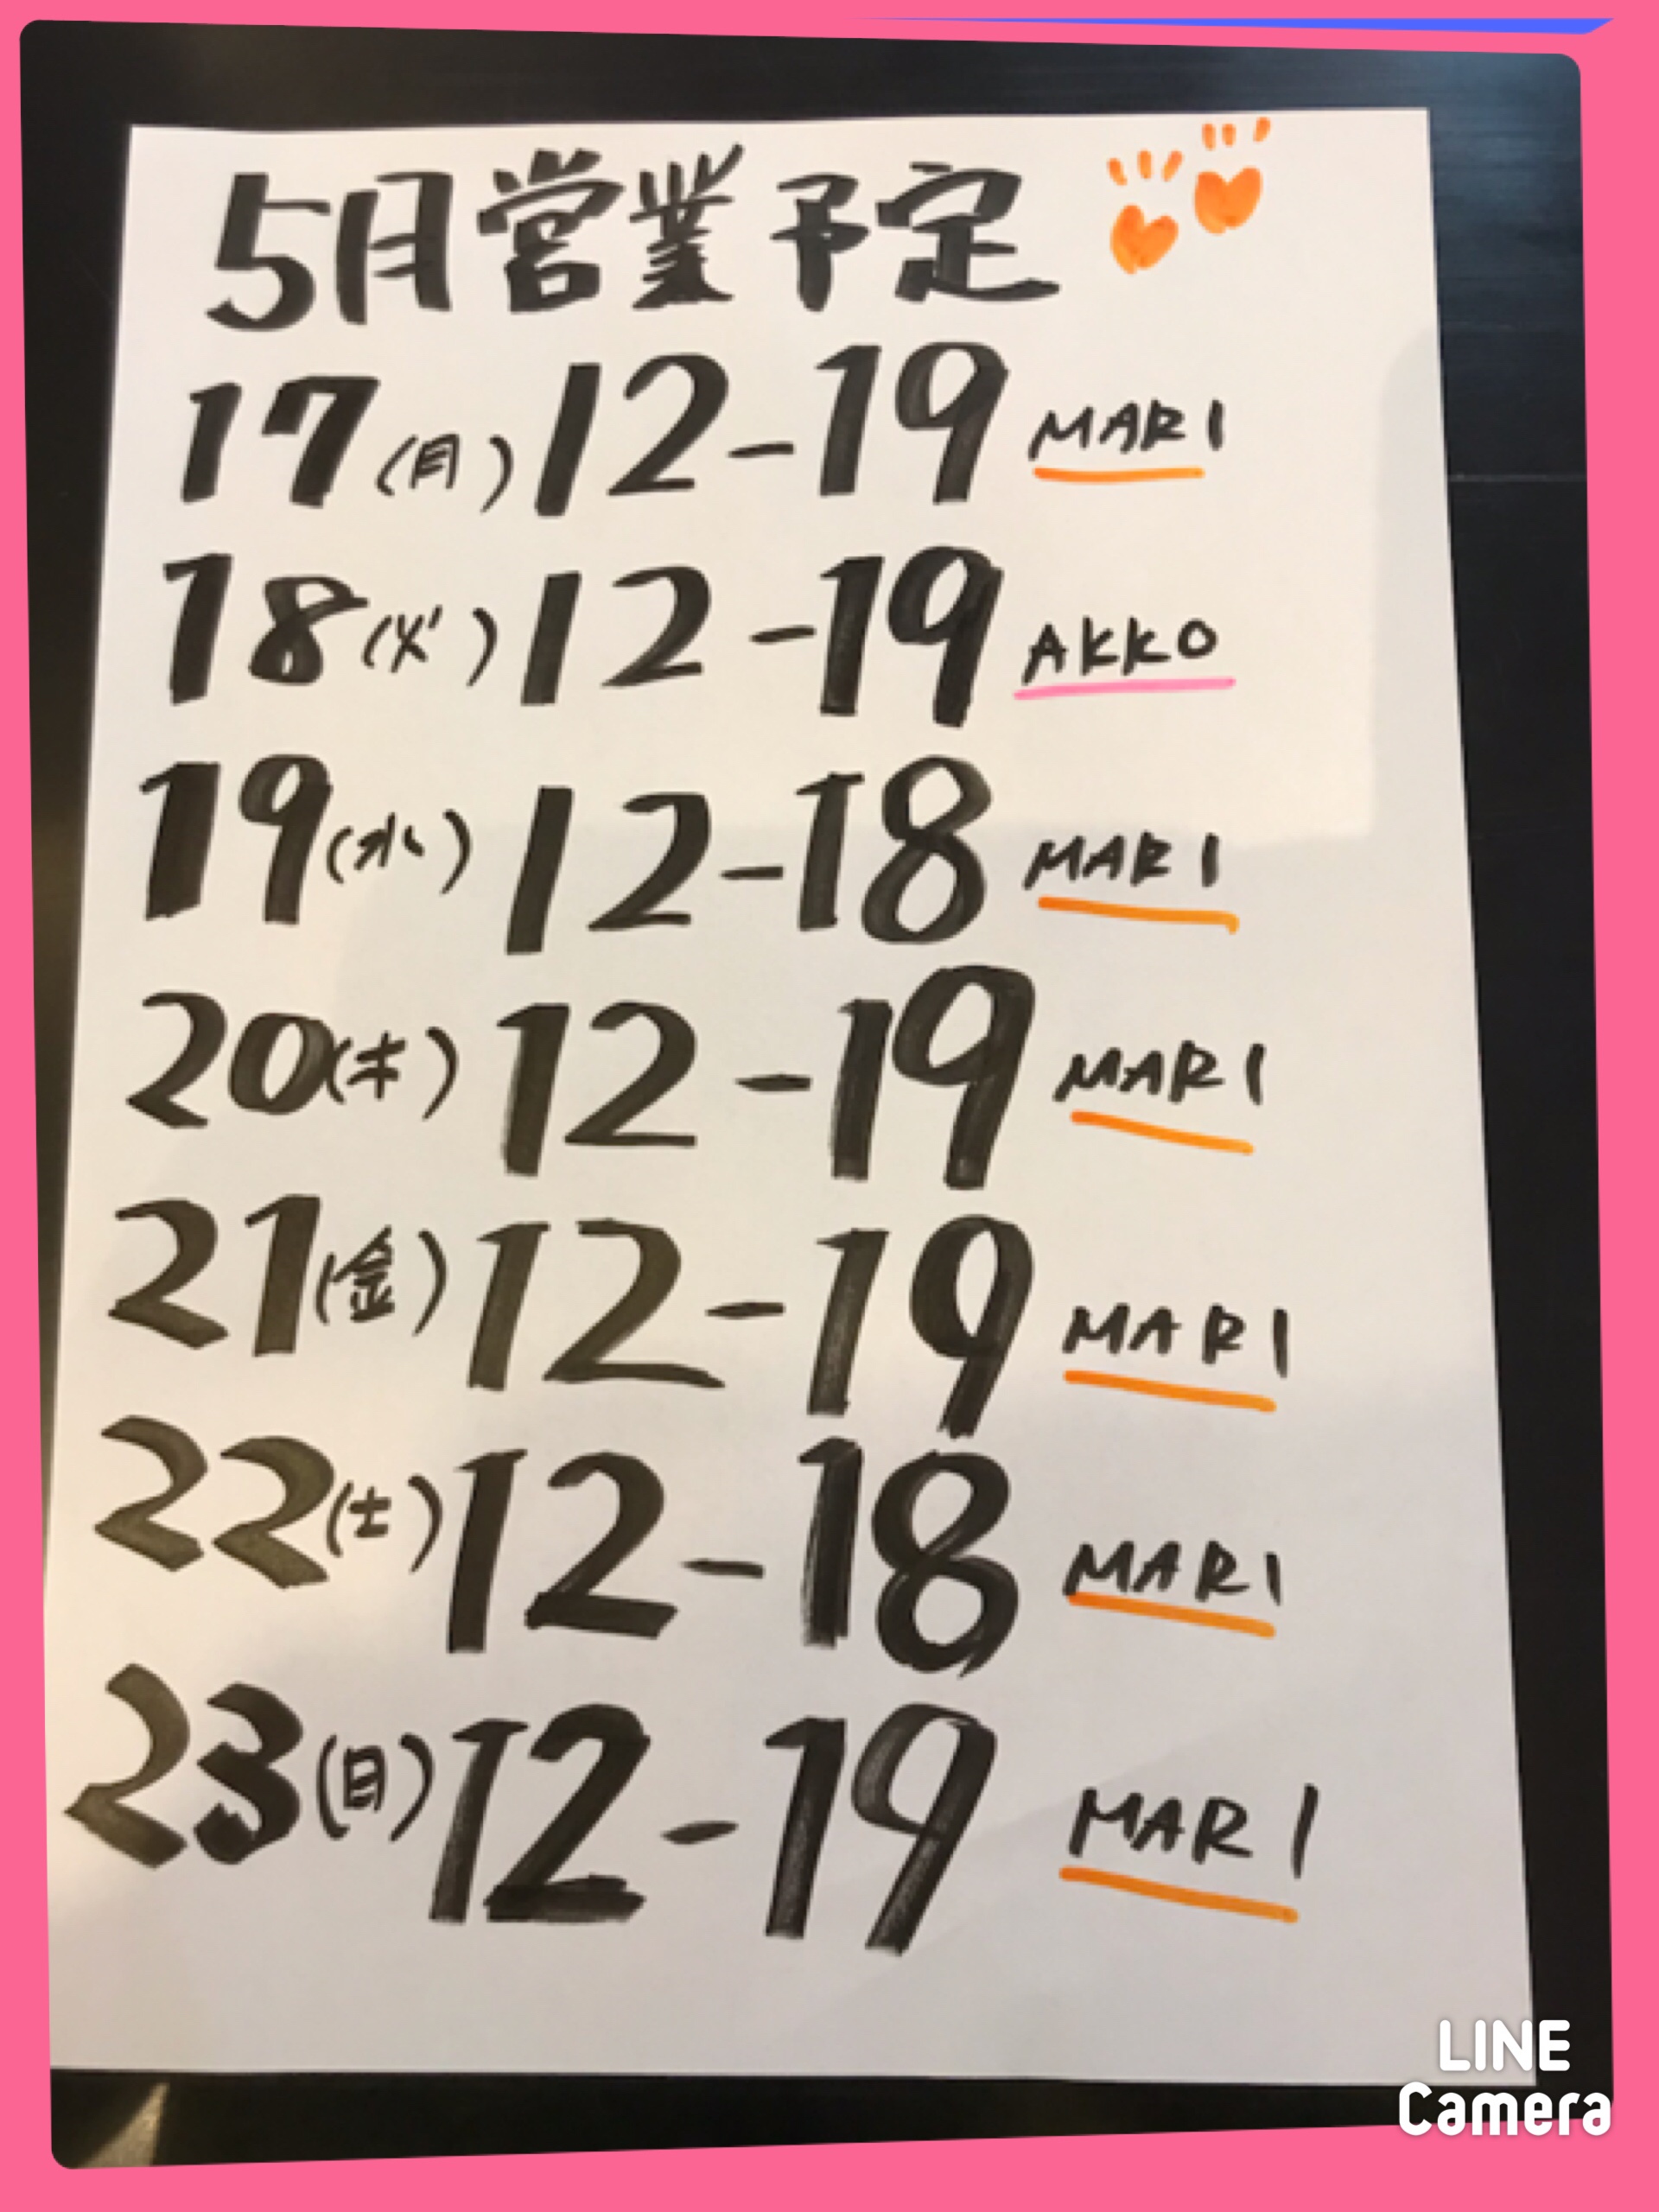 5月営業予定
17(月)12-19 MARI
18(火)12-19 AKKO
19(水)12-18 MARI
20(木)12-19 MARI
21(金)12-19 MARI
22(土)12-18 MARI
23(日)12-19 MARI
LINE
Camera